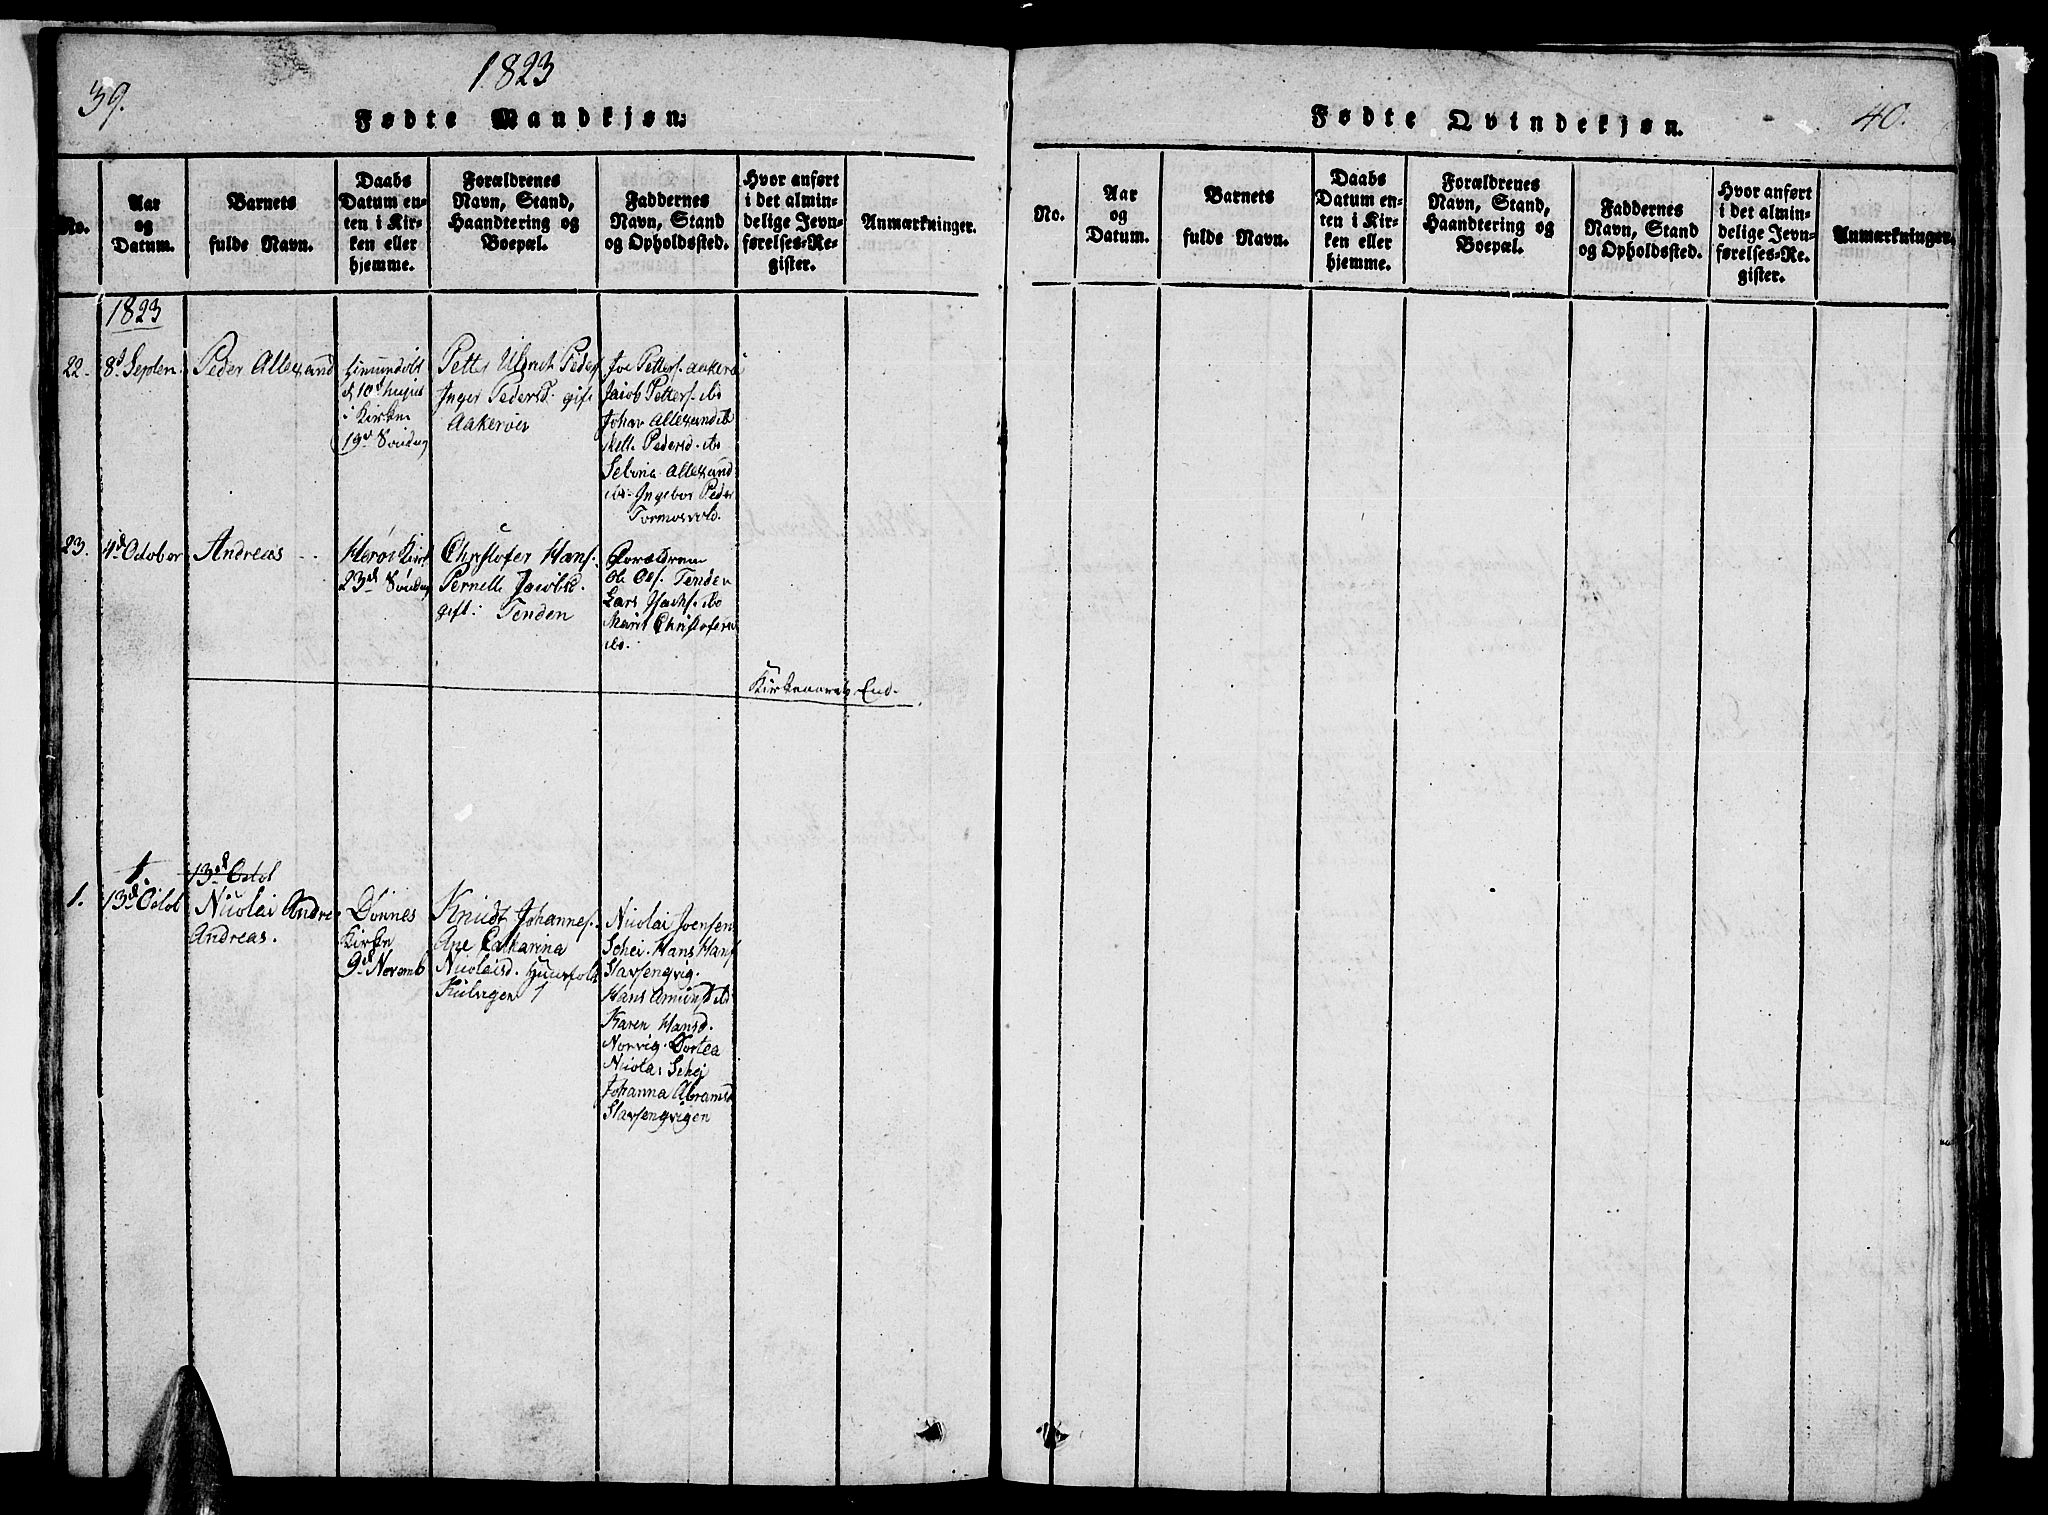 39.
1823
Fødte Mandkjøn.
No.
Aar
og
Datum.
Barnets
fulde Navn.
Daabs
Datum en-
ten i Kir-
ken eller
hjemme.
Forældrenes
Navn, Stand,
Haandtering og
Boepæl.
Faddernes
Navn, Stand
og Opholdssted.
Hvor anført
i det almin-
delige Jevn-
førelses-Re-
gister.
Anmærkninger.
1823
22.
8d Septen
Peder Allexand
d 10d hujus
i Kirken
19d Søndag
Petter Ulrich Peders
Inger Pedersd. gift
Aakerøen
Joe Petters. aakerø
Jacob Petters. ibd
Johan Allexand ib
Mette Pedersd. ibd
Sebina Allexand
ibd. Ingebor Peder
Tormosvold.
23.
4d October
Andreas
Herøe Kirk
23d Søndag
Christofer Hans.
Pernelle Jacobsd.
gift. Tenden
Forældrene
Ole Ols. Tenden
Lars Isachs. ibd
Marit Christofersd
ibd.
Kirkeaarets End.
1.
13d Octob
1.
13d Octob
Nicolai Andre
Andreas.
Dønnes
Kirke
9d Novemb
Knudt Johannes.
Ane Catharina
Nicolaisd. Huusfolk
Kulvigen
Nicolai Joensen
Schei. Hans Hans
Slavsengvig.
Hans Amunds ibd
Karen Hansd.
Norvig. Dortea
Nicolai Schei
Johanna Abramsd
Slavsengvigen
Fødte Qvindekjøn.
40.
No.
Aar
og
Datum.
Barnets
fulde Navn.
Daabs
Datum en-
ten i Kir-
ken eller
hjemme.
Forældrenes
Navn, Stand,
Haandtering og
Boepæl.
Faddernes
Navn, Stand
og Opholdssted.
Hvor anført
i det almin-
delige Jevn-
førelses-Re-
gister.
Anmærkninger.